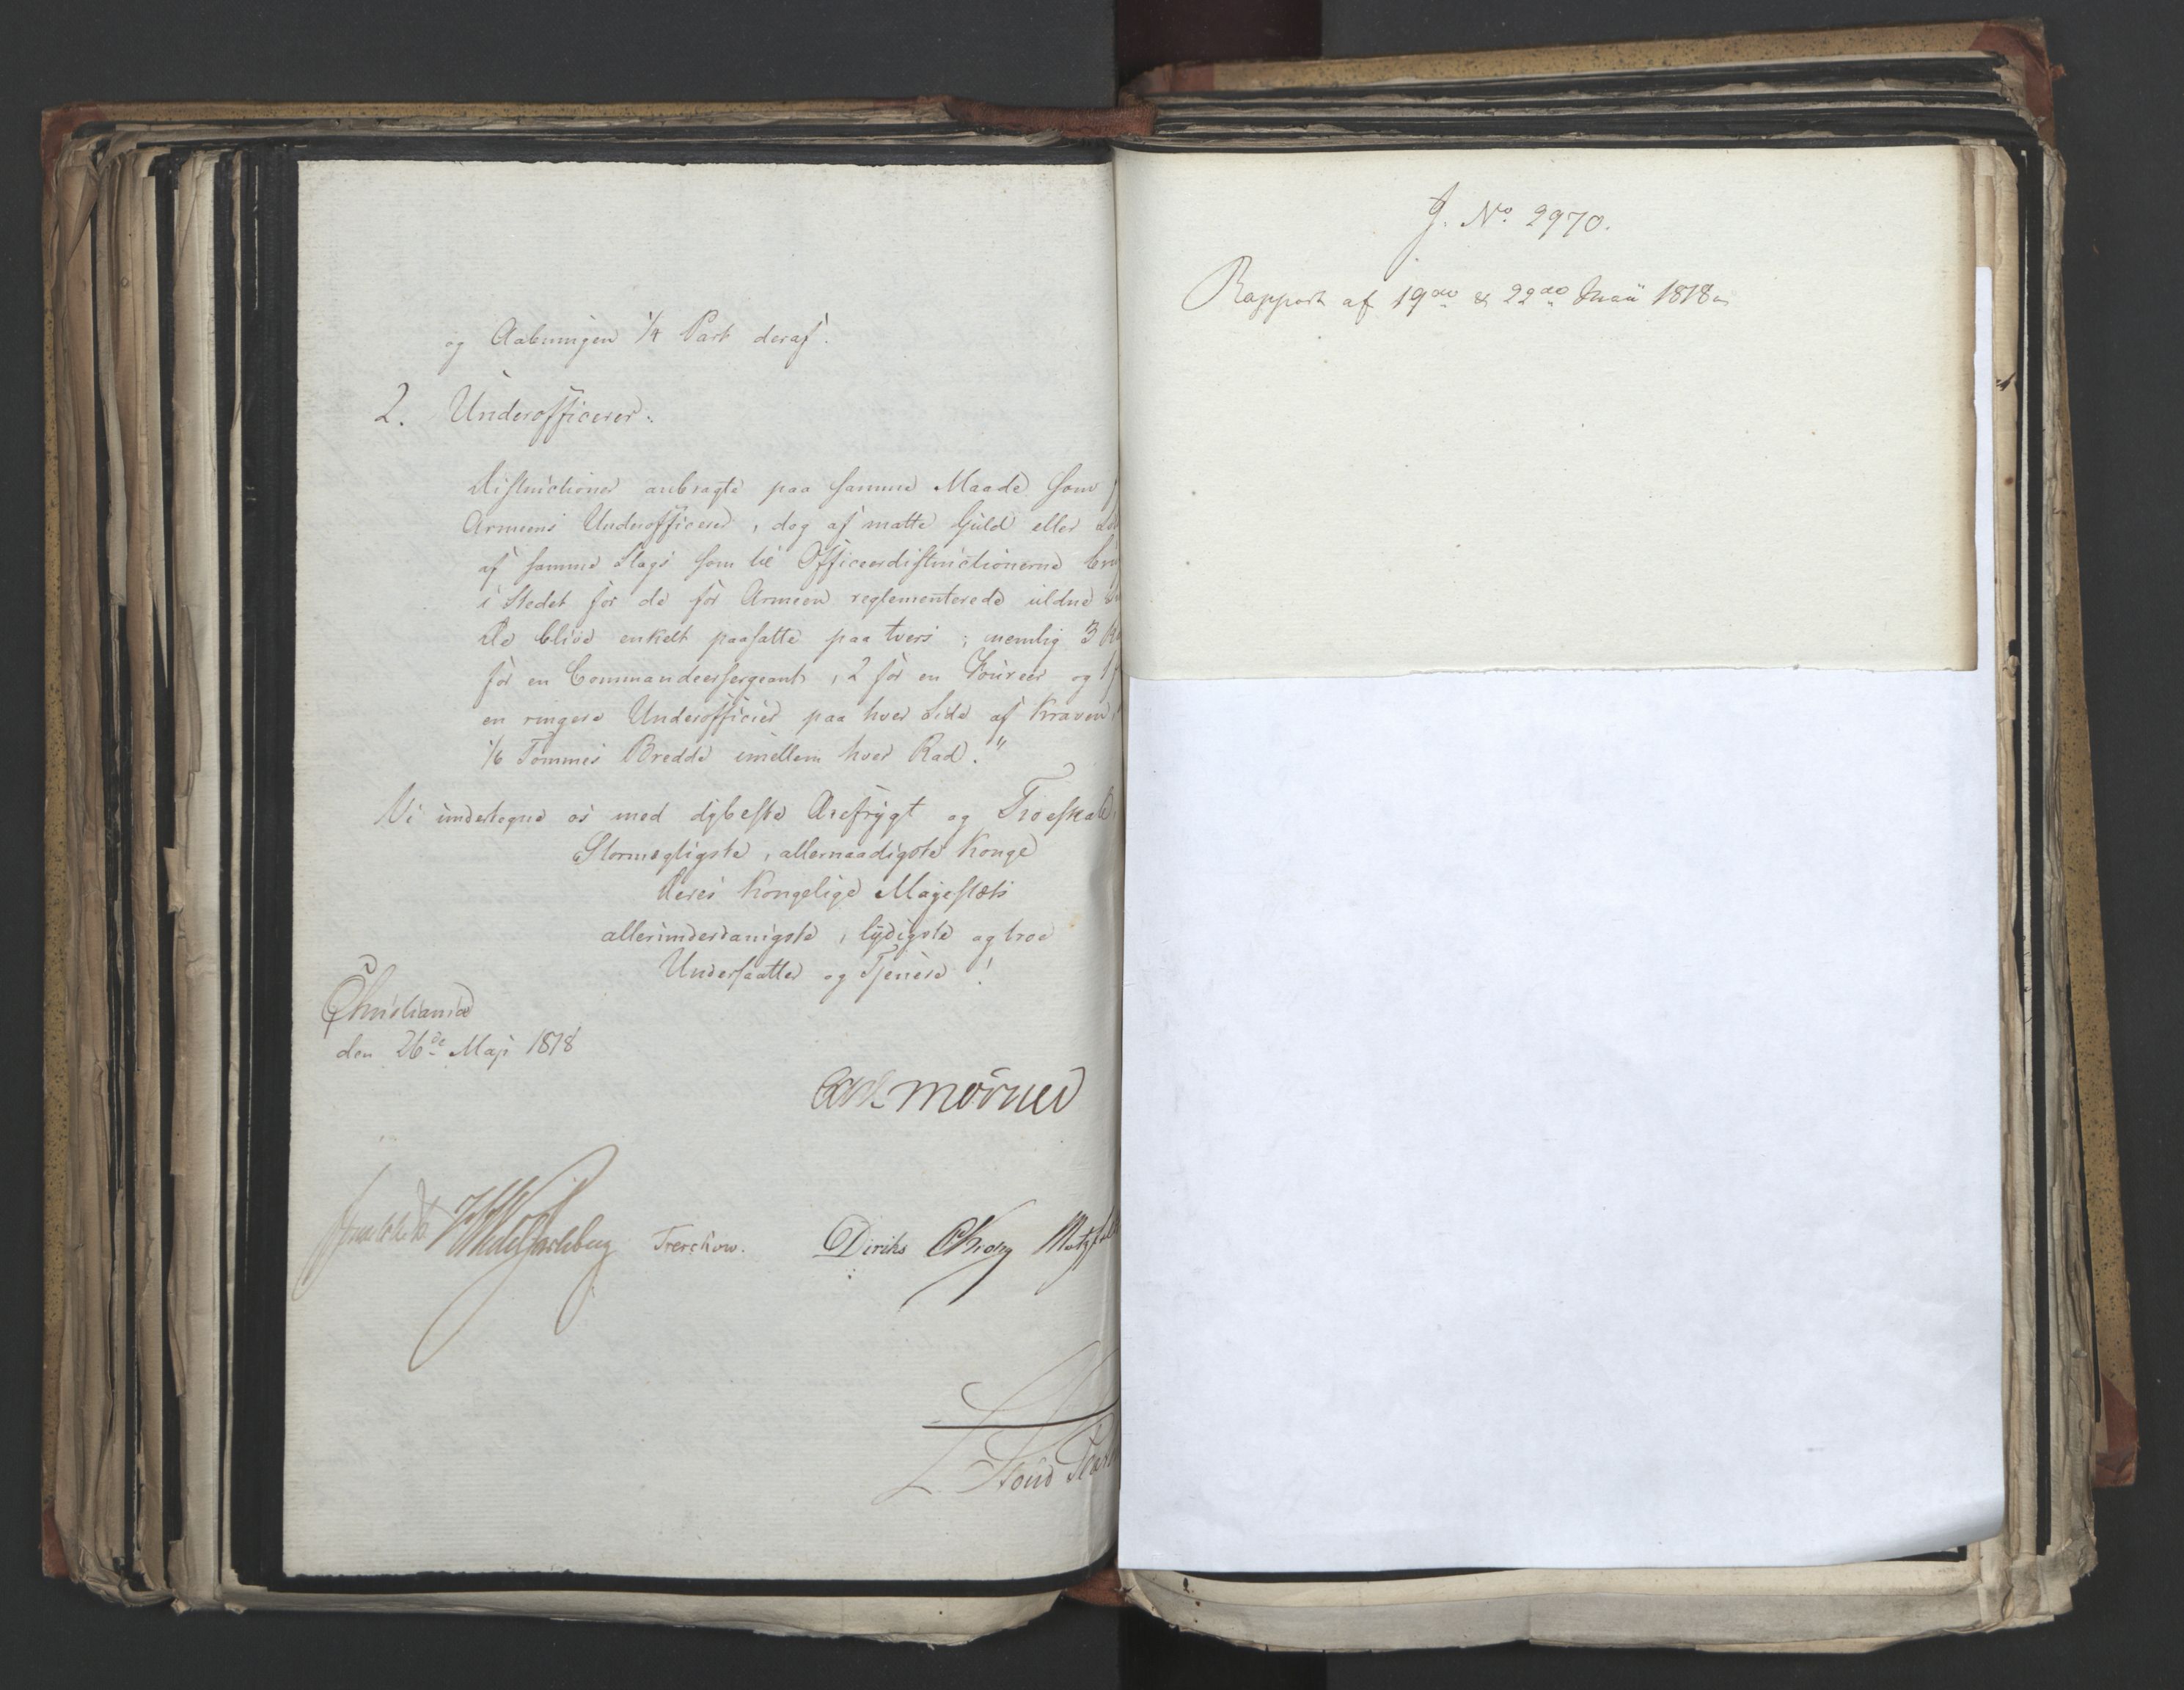 og Aabningen 1/4 Part deraf.
2. Underofficerer:
Distinctioner anbragte paa samme Maade som
Armeens Underofficerer, dog af matte Guld eller
af samme Slags som til Officeersdistinctionerne
i Stedet for de for Armeen reglementerede uldne
De blive enkelt paasatte paa tvers; nemlig 3
for en Commandeersergeant, 2 for en Foureer og 1
en ringere Underofficier paa hver Side af Kraven
1/6 Tommes Bredde imellem hver Rad."
Vi undertegne os med dybeste Ærefrygt og Troeskab
Stormægtigste, allernaadigste Konge
Deres Kongelige Majestæts
allerunderdanigste, lydigste og troe
Undersaatter og Tjenere!
Christiania
den 26de Maji 1818
Mörner
Treschow. Diriks Krog
J. No 2970.
Rapport af 19de & 22de Maii 1818